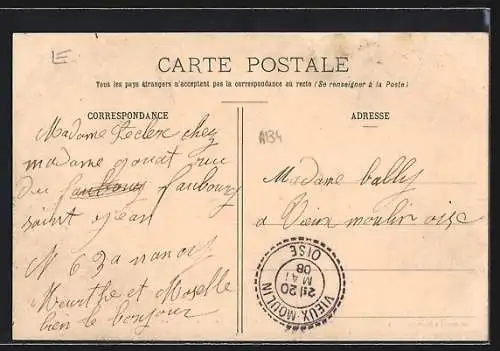 CARTE POSTALE
Tous les pays étrangers n'acceptent pas la correspondance au recto (Se renseigner à la Poste)
CORRESPONDANCE
ADRESSE
A134
Madame Leclerc chez
madame gonat rue
du faubourg faubourg
saint jean
N 63 a nancy
Meurthe et Moselle
bien le bonjour
Madame bally
a Vieux moulin oise
VIEUX-MOULIN
OISE
20
MAI
08